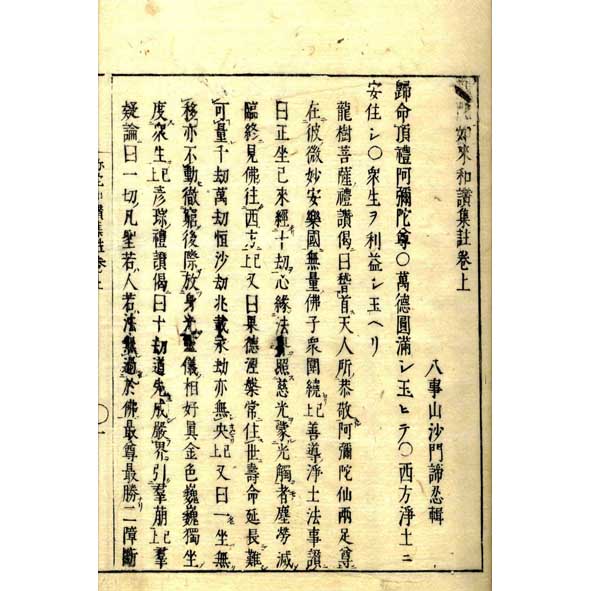 陀如來和讚集註卷上
八事山沙門諦忍輯
歸命頂禮阿彌陀尊〇萬德圓滿シ玉ヒテ〇西方淨土ニ
安住シ〇衆生ヲ利益シ玉ヘリ
龍樹菩薩禮讚偈曰稽首天人所恭敬阿彌陀仙兩足尊
在彼微妙安樂國無量佛子衆圍繞上記善導淨土法事讚
曰正坐已來經十劫心緣法界照慈光蒙光觸者塵勞滅
臨終見佛往西方上記又曰果德涅槃常住世壽命延長難
可量千劫萬劫恒沙劫兆載永劫亦無央上記又曰一坐無
移亦不動徹窮後際放身光靈儀相好眞金色巍巍獨坐
度衆生上記彥琮禮讚偈曰十劫道先成嚴界引羣萠上記羣
疑論曰一切凡聖若人若法無過於佛最尊最勝二障斷